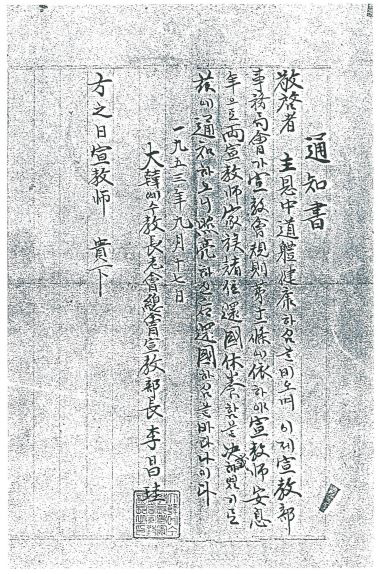 通知書
敬啓者 主恩中道體健康하심을비오며 이제宣教部
事務局會가宣教會規則第十一條에依하야宣教師安息
年으로兩宣教師家族諸位還國休養함을決하였기로
玆에通知하오니照亮하신後還國하심을바라나이다
一九五三年九月十七日
大韓예수教長老會總會宣教部長 李昌珪
方之日宣教師 貴下